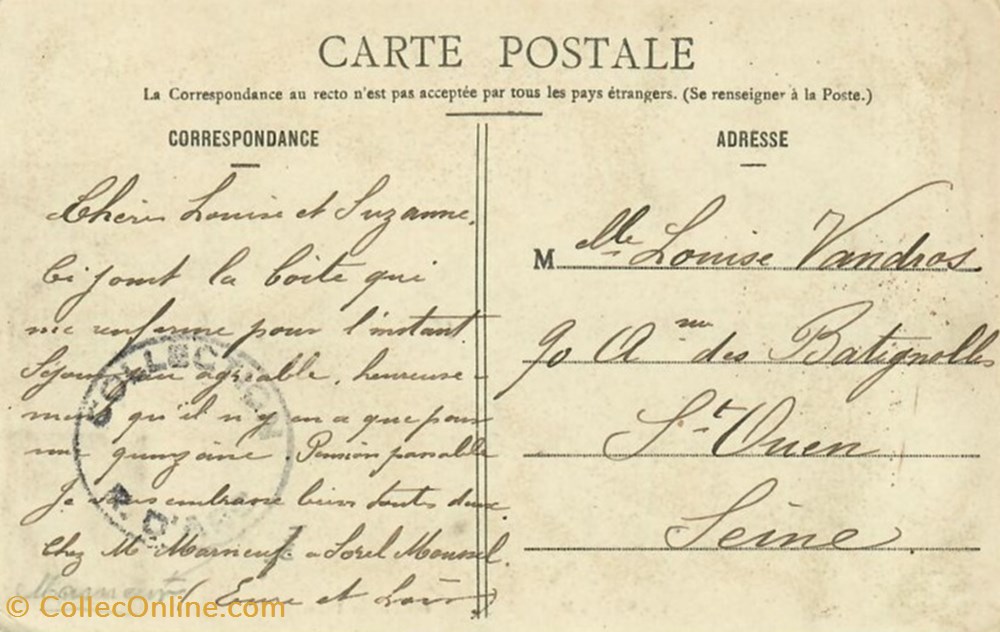 CARTE POSTALE
La Correspondance au recto n'est pas acceptée par tous les pays étrangers. (Se renseigner à la Poste.)
CORRESPONDANCE
Chères Louise et Suzanne,
Ci joint la boîte qui
me renferme pour l'instant.
Séjour peu agréable, heureuse-
ment qu'il n'y en a que pour
une quinzaine. Pension passable
Je vous embrasse bien toutes deux.
Chez M Marneuf a Sorel Moussel.
(Eure et Loir)
COLLECTION
ADRESSE
Melle Louise Vandros
90 Anue des Batignolles
St Ouen
Seine
© CollecOnline.com